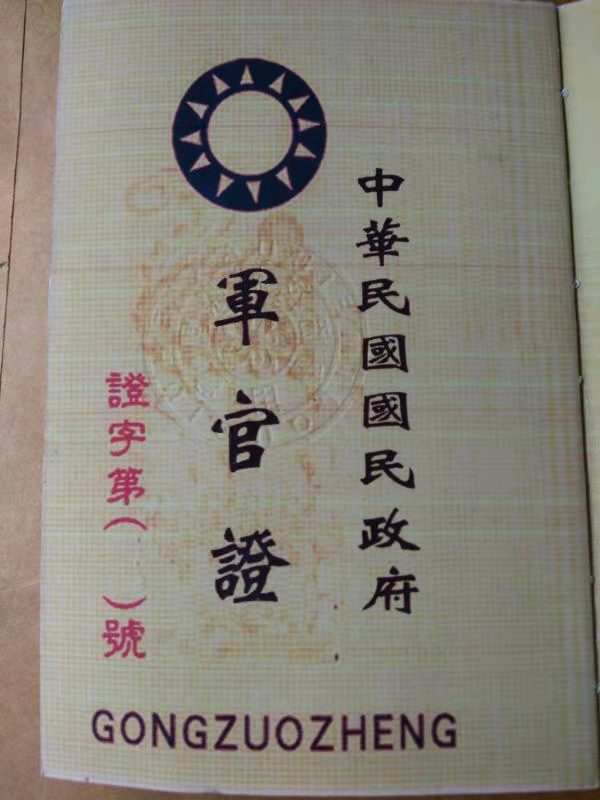 中華民國國民政府
軍官證
證字第（　）號
GONGZUOZHENG